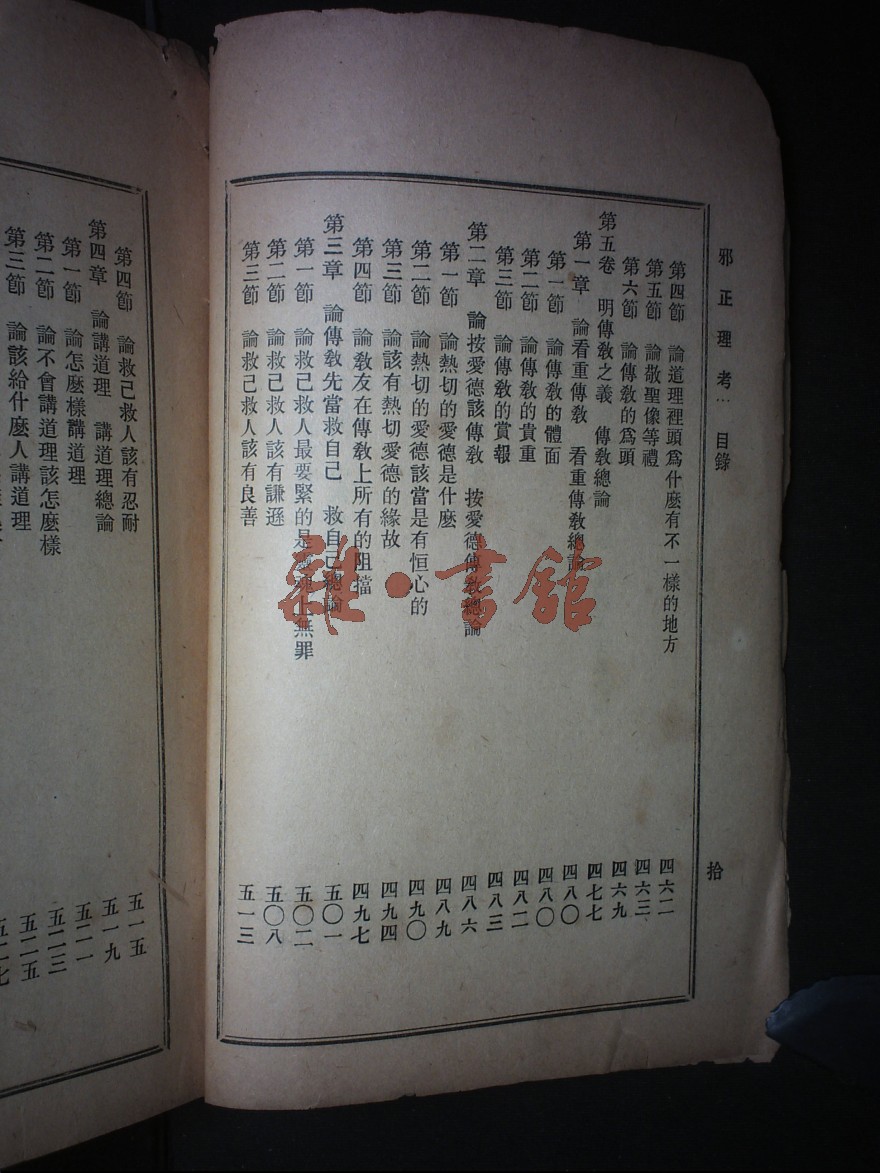 邪正理考 目錄
拾
第四節 論道理裡頭爲什麽有不一樣的地方 四六二
第五節 論敬聖像等禮 四六三
第六節 論傳敎的爲頭 四六九
第五卷 明傳敎之義 傳敎總論 四七七
第一章 論看重傳敎 看重傳敎總論 四八〇
第一節 論傳敎的體面 四八〇
第二節 論傳敎的貴重 四八二
第三節 論傳敎的賞報 四八三
第二章 論按愛德該傳敎 按愛德傳敎總論 四八六
第一節 論熱切的愛德是什麽 四八九
第二節 論熱切的愛德該當是有恒心的 四九〇
第三節 論該有熱切愛德的緣故 四九四
第四節 論敎友在傳敎上所有的阻擋 四九七
第三章 論傳敎先當救自己 救自己總論 五〇一
第一節 論救己救人最要緊的是靈魂上無罪 五〇二
第二節 論救己救人該有謙遜 五〇八
第三節 論救己救人該有良善 五一三
第四節 論救己救人該有忍耐 五一五
第四章 論講道理 講道理總論 五一九
第一節 論怎麽樣講道理 五二一
第二節 論不會講道理該怎麽樣 五二三
第三節 論該給什麽人講道理 五二五
雜·書館